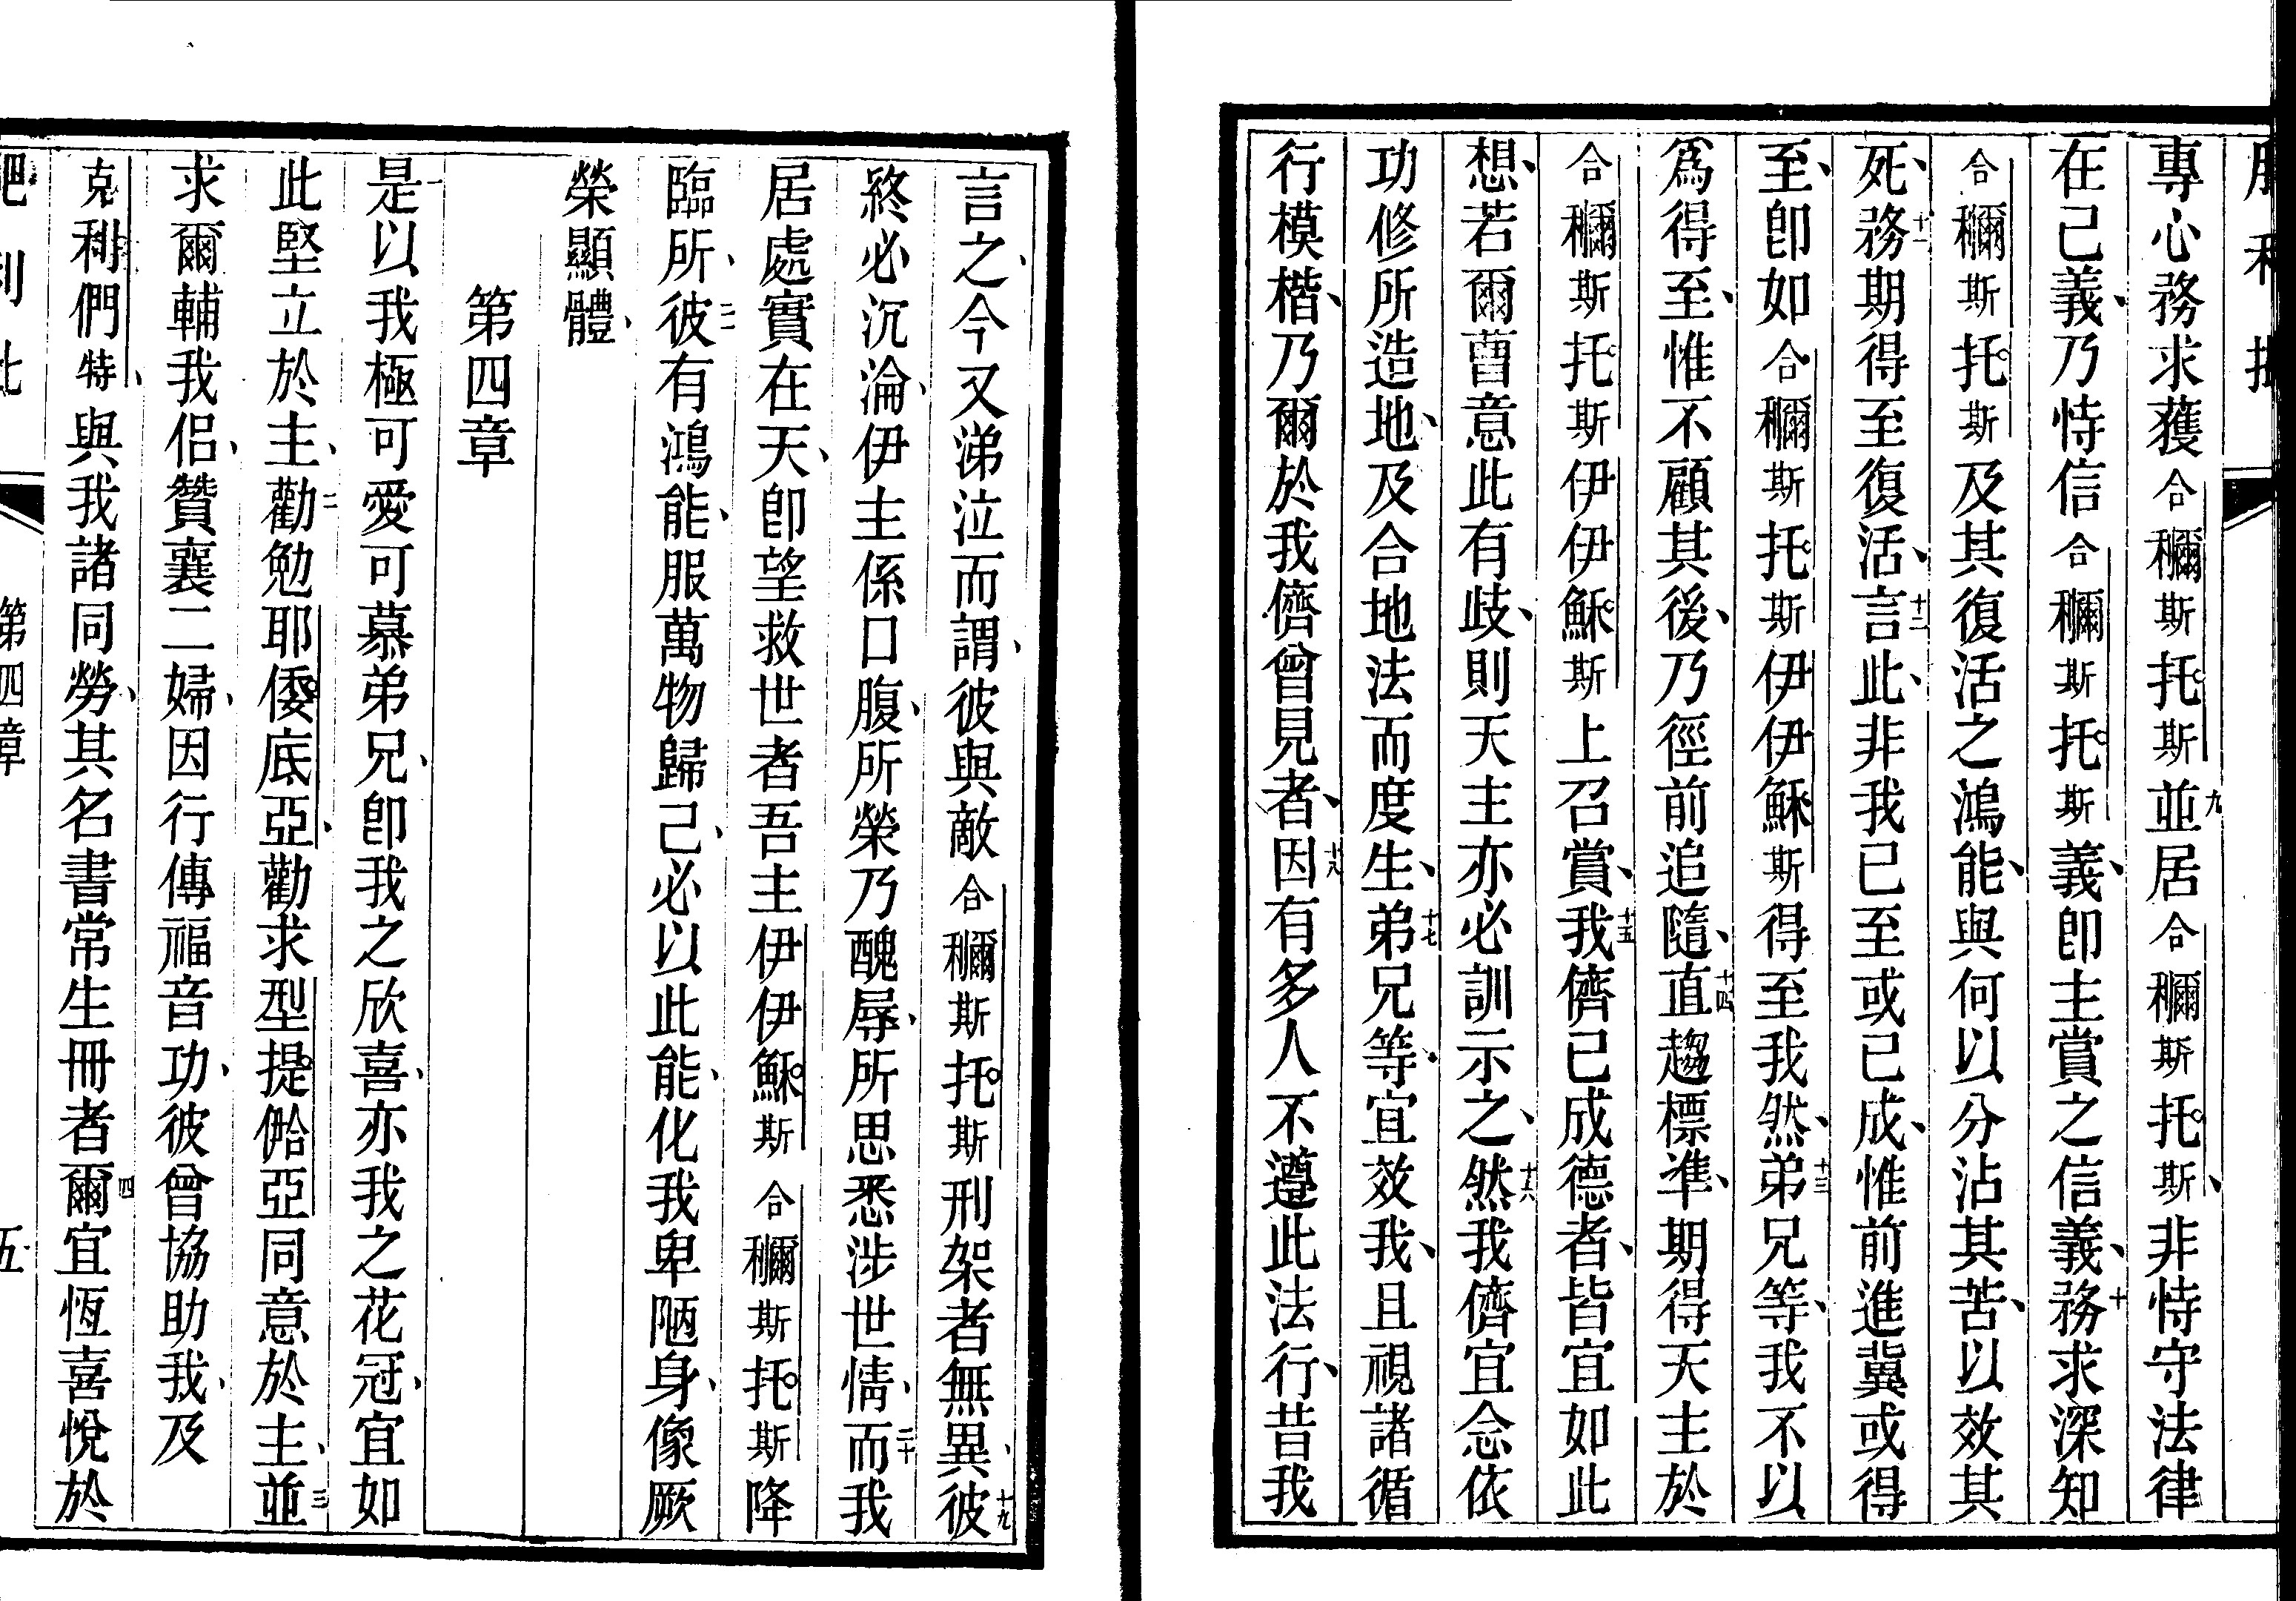 專心務求獲合穪斯托斯九並居合穪斯托斯、非恃守法律
在己義、乃恃信合穪斯托斯義、卽主賞之信義、十務求深知
合穪斯托斯及其復活之鴻能、與何以分沾其苦、以效其
死、十一務期得至復活、十二言此、非我已至或已成、惟前進冀或得
至、卽如合穪斯托斯伊伊穌斯得至我然、十三弟兄等、我不以
爲得至、惟不顧其後、乃徑前追隨、十四直趨標準、期得天主於
合穪斯托斯伊伊穌斯上召賞、十五我儕已成德者、皆宜如此
想、若爾曹意此有歧、則天主亦必訓示之、十六然我儕宜念依
功修所造地、及合地法而度生、十七弟兄等、宜效我、且視諸循
行模楷、乃爾於我儕曾見者、十八因有多人不遵此法行、昔我
言之、今又涕泣而謂、彼與敵合穪斯托斯刑架者無異、十九彼
終必沉淪、伊主係口腹、所榮乃醜辱、所思悉涉世情、二十而我
居處實在天、卽望救世者吾主伊伊穌斯合穪斯托斯降
臨所、二一彼有鴻能、服萬物歸己、必以此能、化我卑陋身、像厥
榮顯體、
第四章
一是以我極可愛可慕弟兄、卽我之欣喜、亦我之花冠、宜如
此堅立於主、二勸勉耶倭底亞、勸求型提𠋤亞同意於主、三並
求爾輔我侶、贊襄二婦、因行傳福音功、彼曾協助我、及
克利們特、與我諸同勞、其名書常生冊者、四爾宜恆喜悅於
第四章
五